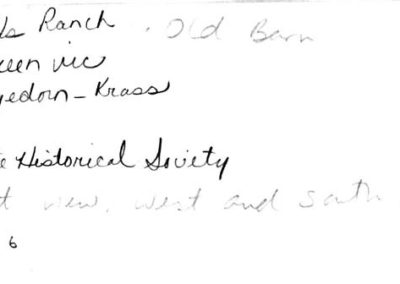 Ranch . Old Barn
vic
gedorn - Krass
Historical Society
view, west and south
6